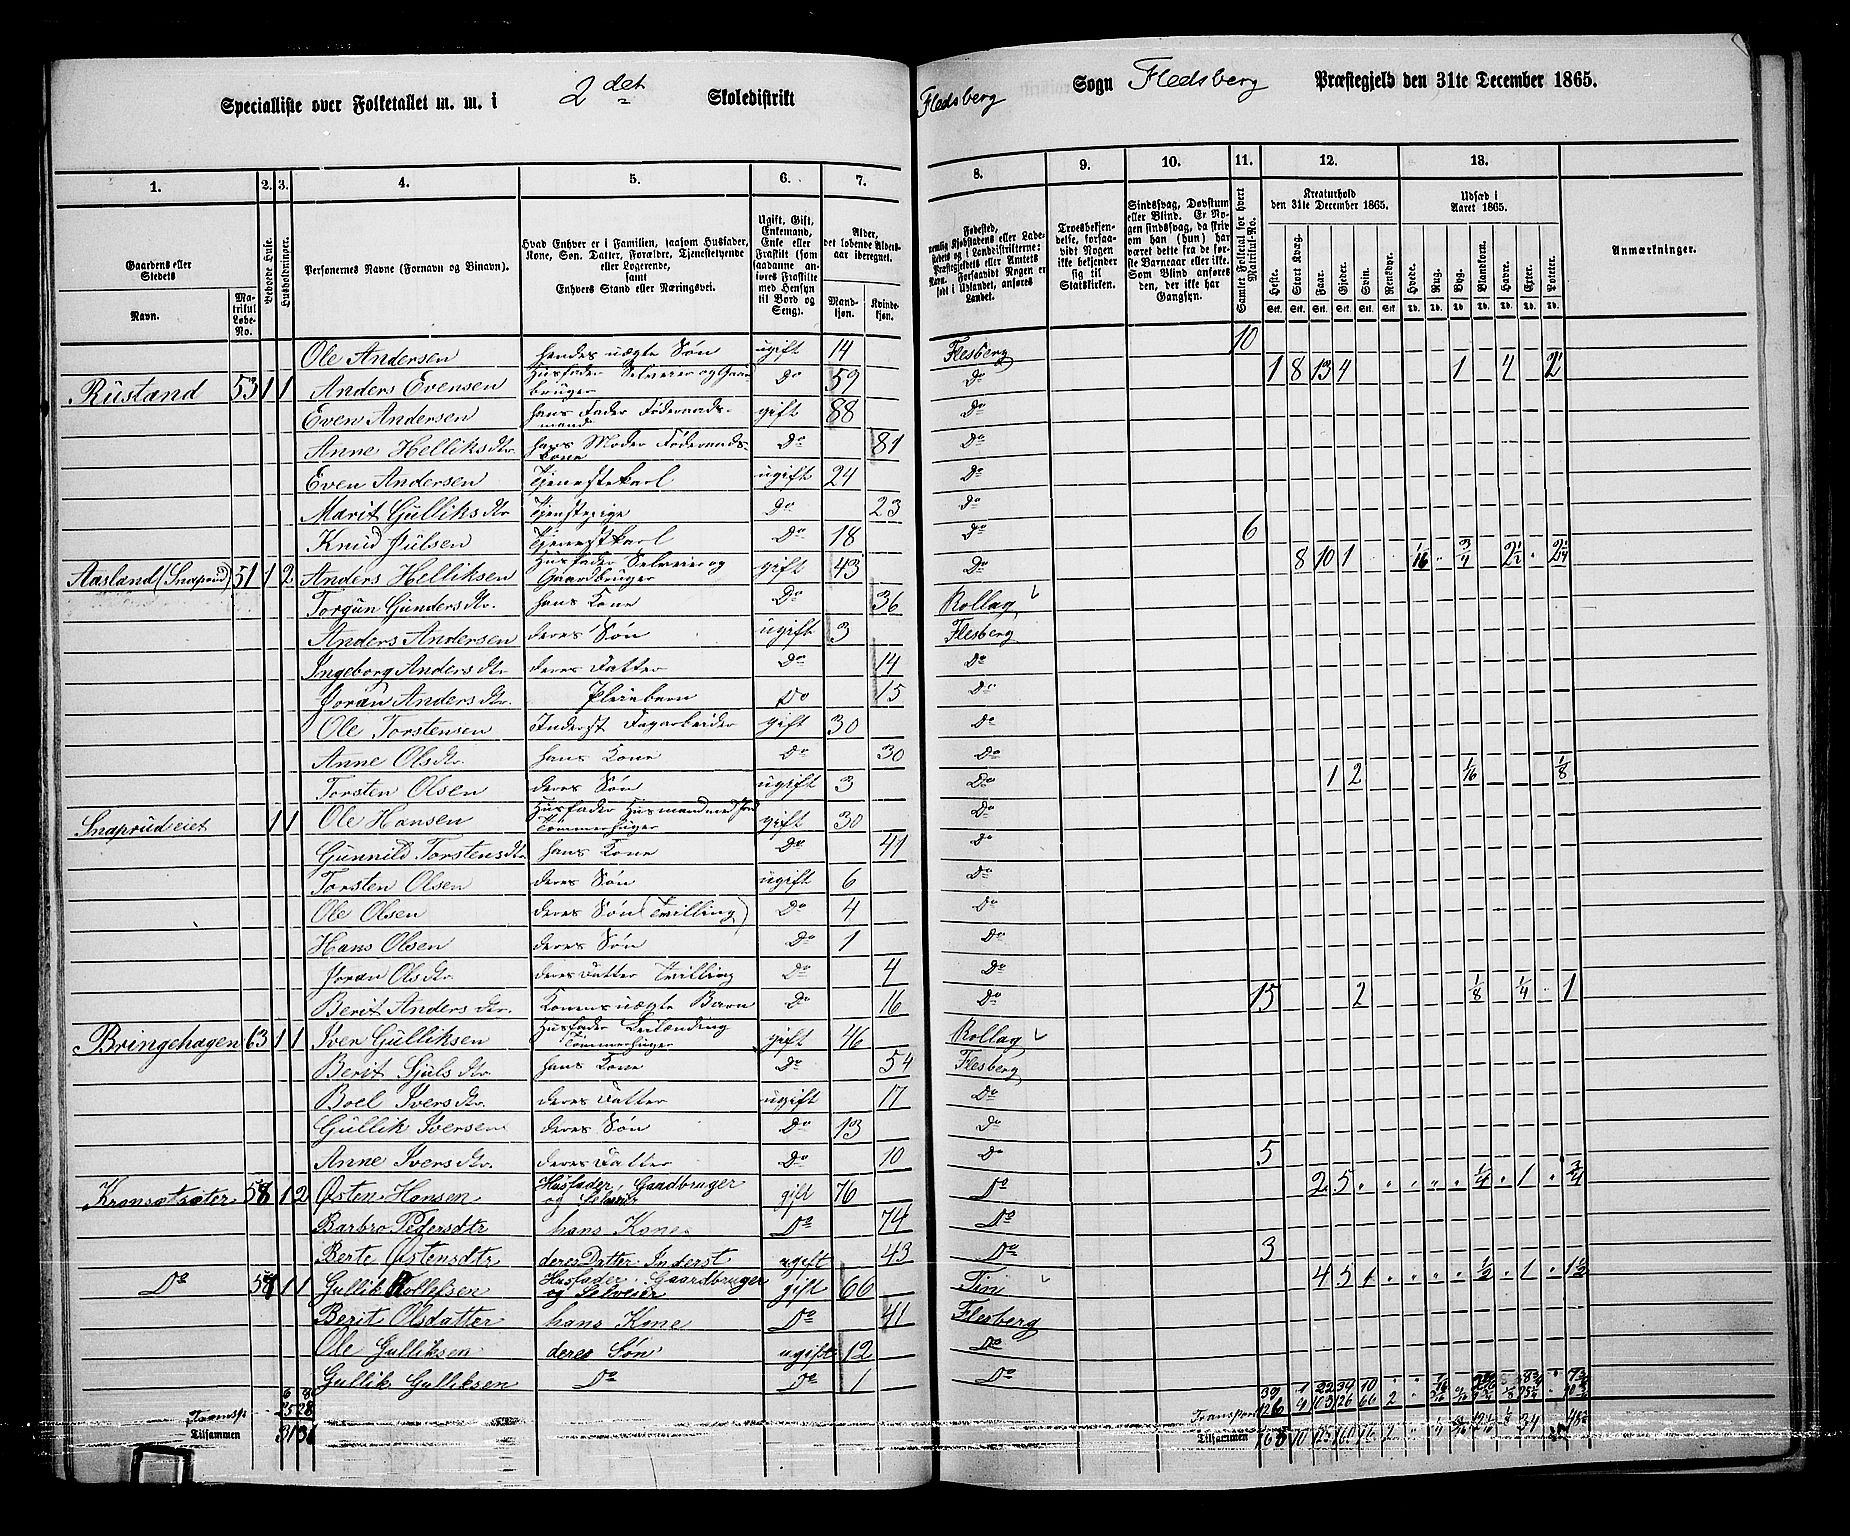 Specialliste over Folketallet m. m. i 2det Skoledistrikt Fledsberg Sogn Fledsberg Præstegjeld den 31te December 1865.
1. 2. 3. 4. 5. 6. 7. 8. 9. 10. 11. 12. 13.
Gaardens eller Stedets
Navn.
Matrikul Løbe-No.
Beboede Huse.
Husholdninger.
Personernes Navne (Fornavn og Binavn).
Hvad Enhver er i Familien, saasom Husfader, Kone, Søn, Datter, Forældre, Tjenestetyende eller Logerende, samt Enhvers Stand eller Næringsvei.
Ugift, Gift, Enkemand, Enke eller Fraskilt (som saadanne anføres Fraskilte med Hensyn til Bord og Seng).
Alder, det løbende Aldersaar iberegnet.
Mandkjøn. Kvindekjøn.
Fødested,
Troesbekjendelse, forsaavidt Nogen ikke bekjender sig til Statskirken.
Sindssvag, Døvstum eller Blind. Er Nogen sindssvag, da skrives om han (hun) har været dette fra de første Barneaar eller ikke. Som Blind anføres den, der ikke har Gangsyn.
Samlet Folketal for hvert Matrikul-No.
Kreaturhold den 31te December 1865.
Heste. Stort Kvæg. Faar. Gjeder. Svin. Rensdyr.
Udsæd i Aaret 1865.
Hvede. Rug. Byg. Blandkorn. Havre. Erter. Poteter.
Anmærkninger.
Ole Andersen hendes uægte Søn ugift 14 Flesberg 10
Rustand 53 1 1 Anders Evensen Husfader Selveier og Gaardbruger Do 59 Do 1 8 13 4 1 4 2
Even Andersen hans Fader Føderaadsmand gift 88 Do
Anne Helliksdtr. hans Moder Føderaadskone Do 81 Do
Even Andersen Tjenestekarl ugift 24 Do
Marit Gulliksdtr Tjenstepige Do 23 Do
Knud Julsen Tjenestkarl Do 18 Do 6
Aasland (Snaprud) 51 1 2 Anders Helliksen Husfader Selveier og Gaardbruger gift 43 Do 8 10 1 1/16 3/4 2 1/2
Torgun Gundersdtr. hans Kone Do 36 Rollag
Anders Andersen deres Søn ugift 3 Flesberg
Ingeborg Andersdtr. deres Datter Do 14 Do
Joran Andersdtr. Pleiebarn Do 15 Do
Ole Torstensen Inderst Fagarbeider gift 30 Do
Anne Olsdtr. hans Kone Do 30 Do
Torsten Olsen deres Søn ugift 3 Do 1 2 1/16 1/8
Snaprudeiet 1 1 Ole Hansen Husfader Husmand med Jord Tømmerhugger gift 30 Do
Gunnild Torstensdtr. hans Kone Do 41 Do
Torsten Olsen deres Søn ugift 6 Do
Ole Olsen deres Søn (Tvilling) Do 4 Do
Hans Olsen deres Søn Do 1 Do
Joran Olsdtr. deres Datter Tvilling Do 4 Do
Berit Andersdtr. Konens uægte Barn Do 16 Do 15 2 1/8 1/4 1
Bringehagen 63 1 1 Iver Gulliksen Husfader Leilænding Tømmerhugger gift 46 Rollag
Berit Gjulsdtr. hans Kone Do 54 Flesberg
Boel Iversdtr. deres Datter ugift 17 Do
Gullik Iversen deres Søn Do 13 Do
Anne Iversdtr. deres Datter Do 10 Do 5
58 1 2 Østen Hansen Husfader, Gaardbruger og Selveier gift 76 Do 2 5 1/4 1 3/4
Barbro Pedersdtr hans Kone Do 74 Do
Berte Østensdtr deres Datter Inderst ugift 43 Do 3
Do 1 1 Gullik Rollefsen Husfader, Gaardbruger og Selveier gift 66 Tin 4 5 1 1/2 1 1 1/2
Berit Olsdatter hans Kone Do 41 Flesberg
Ole Gulliksen deres Søn ugift 12 Do
Gullik Gulliksen Do Do 1 Do
Transp. 25 28 Transport
Tilsammen 31 36 Tilsammen